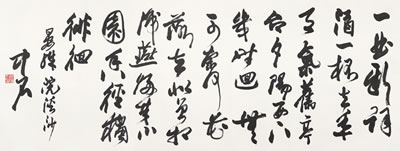 一曲新詞
酒一杯去年
天氣舊亭
台夕陽西下
幾時迴無
可奈何花
落去似曾相
識燕歸來小
園香徑獨
徘徊
晏殊浣溪沙